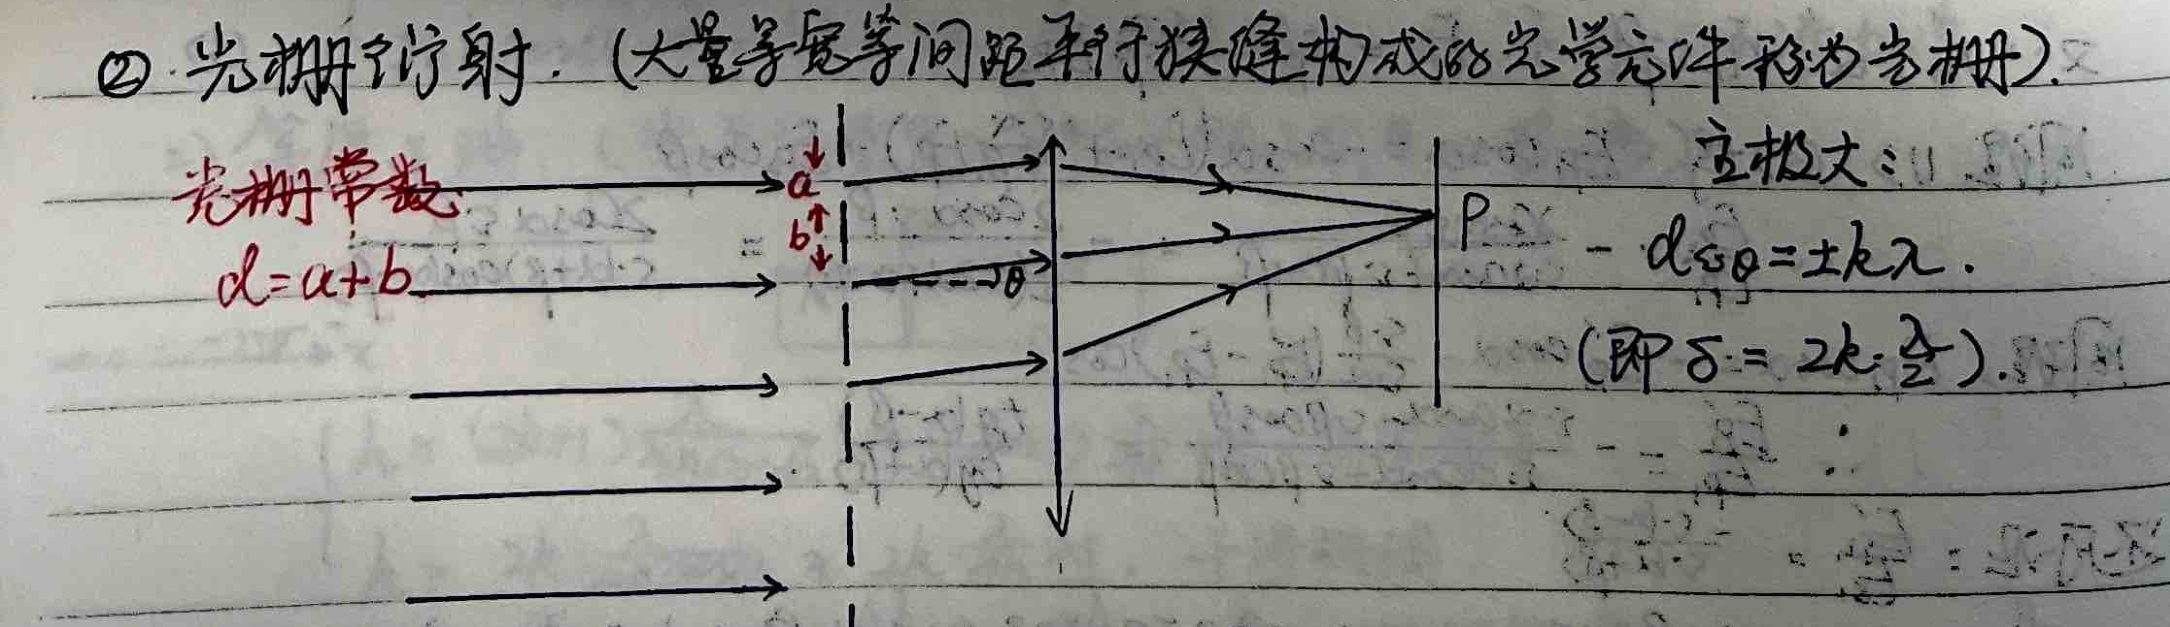 ② 光栅衍射.(大量等宽等间距平行狭缝构成的光学元件称为光栅).
光栅常数
d=a+b
a
b
θ
P
主极大:
d sinθ=±kλ.
(即δ=2k·λ/2).